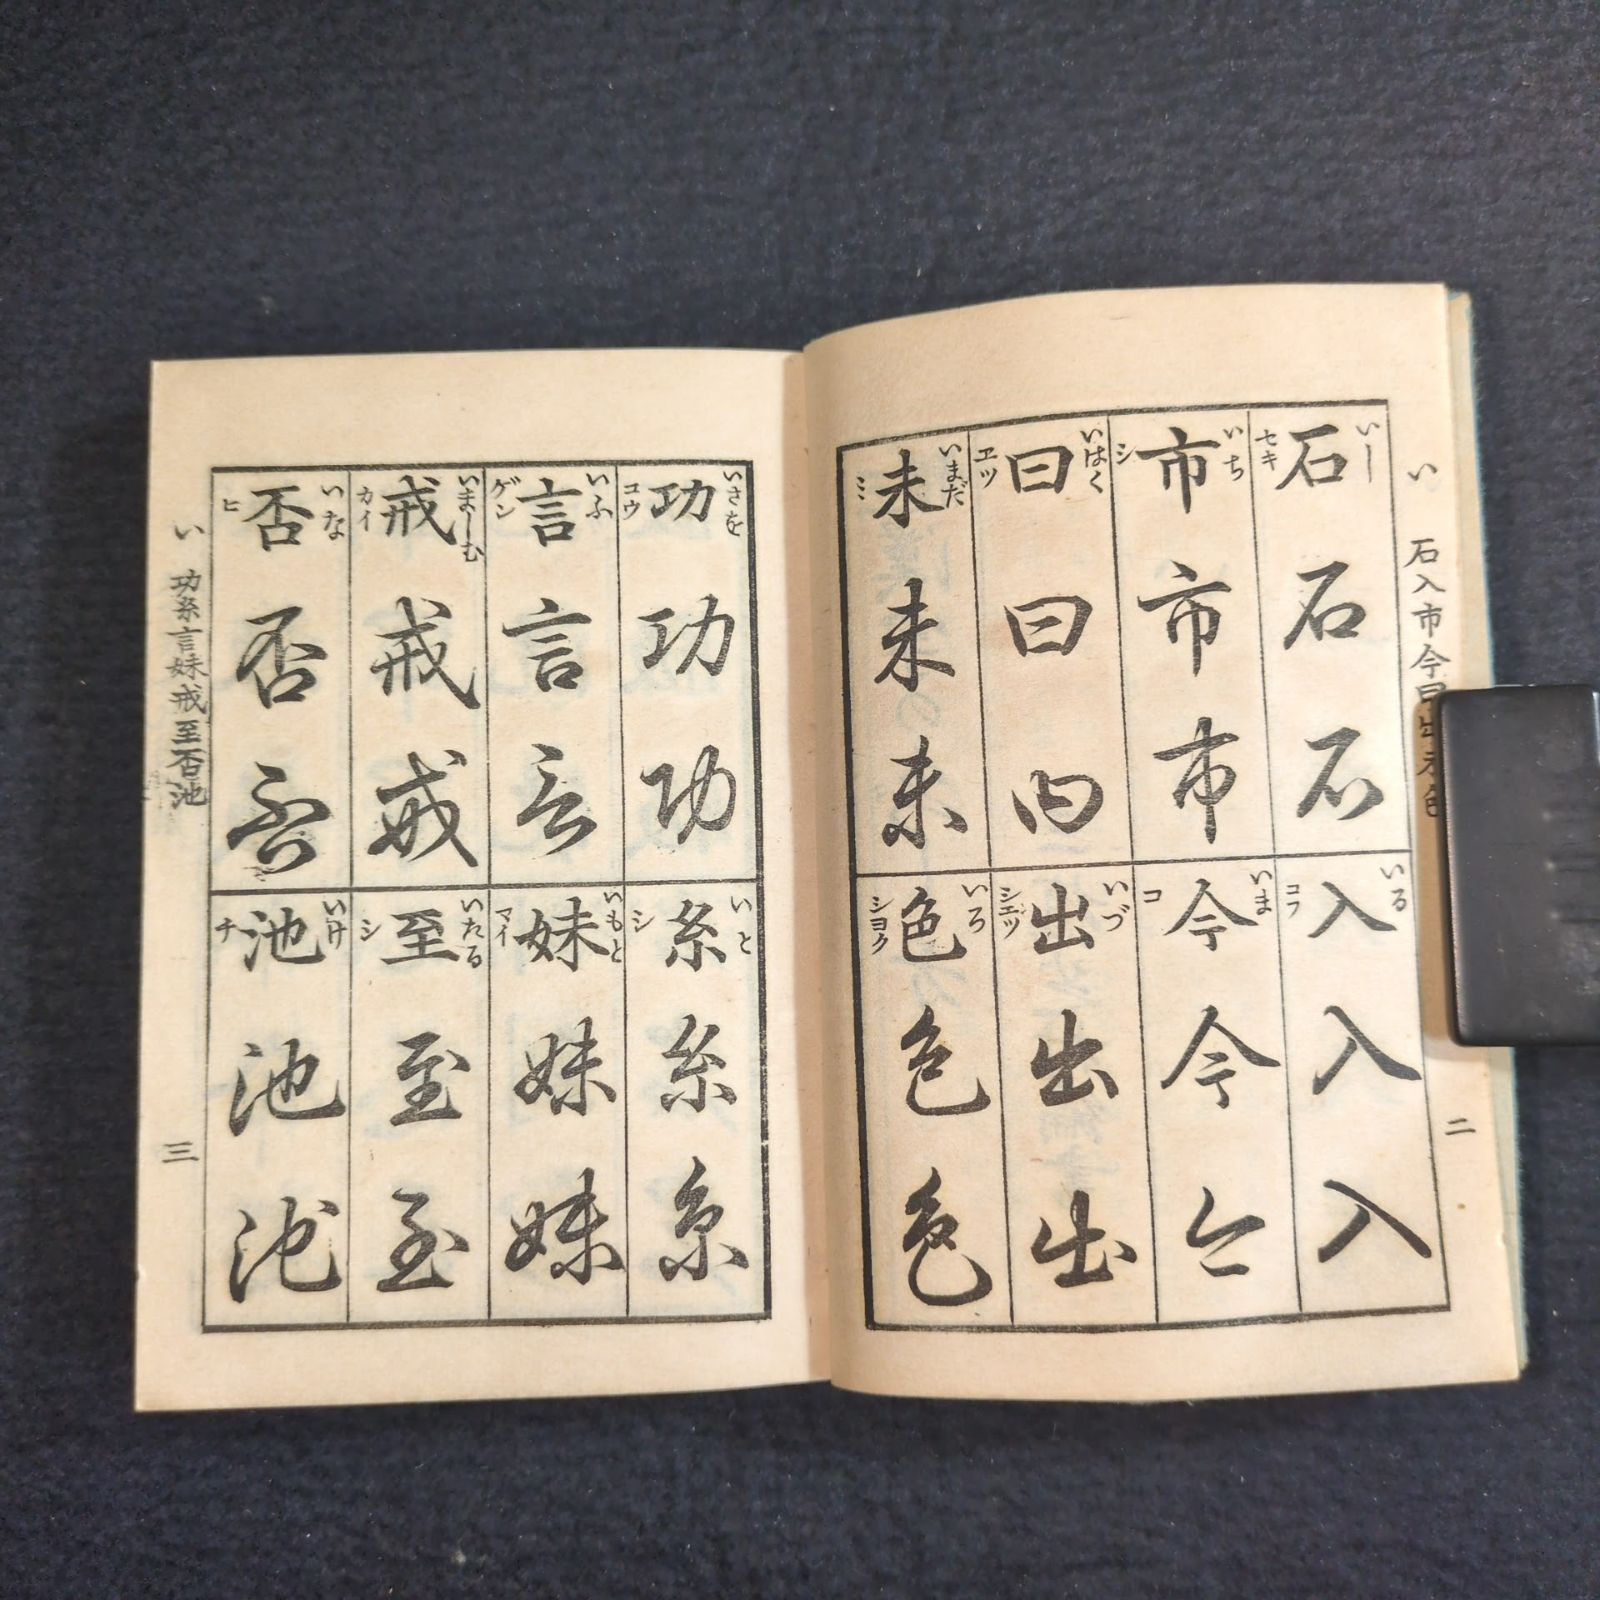 い 石入市今曰出未色 二
いし 石 セキ
石
石
いる 入 コフ
入
入
いち 市 シ
市
市
いま 今 コ
今
今
いはく 曰 エツ
曰
曰
いづ 出 シユツ
出
出
いまだ 未 ミ
未
未
いろ 色 シヨク
色
色
いさを 功 コウ
功
功
いと 糸 シ
糸
糸
いふ 言 ゲン
言
言
いもと 妹 マイ
妹
妹
いましむ 戒 カイ
戒
戒
いたる 至 シ
至
至
いな 否 ヒ
否
否
いけ 池 チ
池
池
い 功糸言妹戒至否池 三